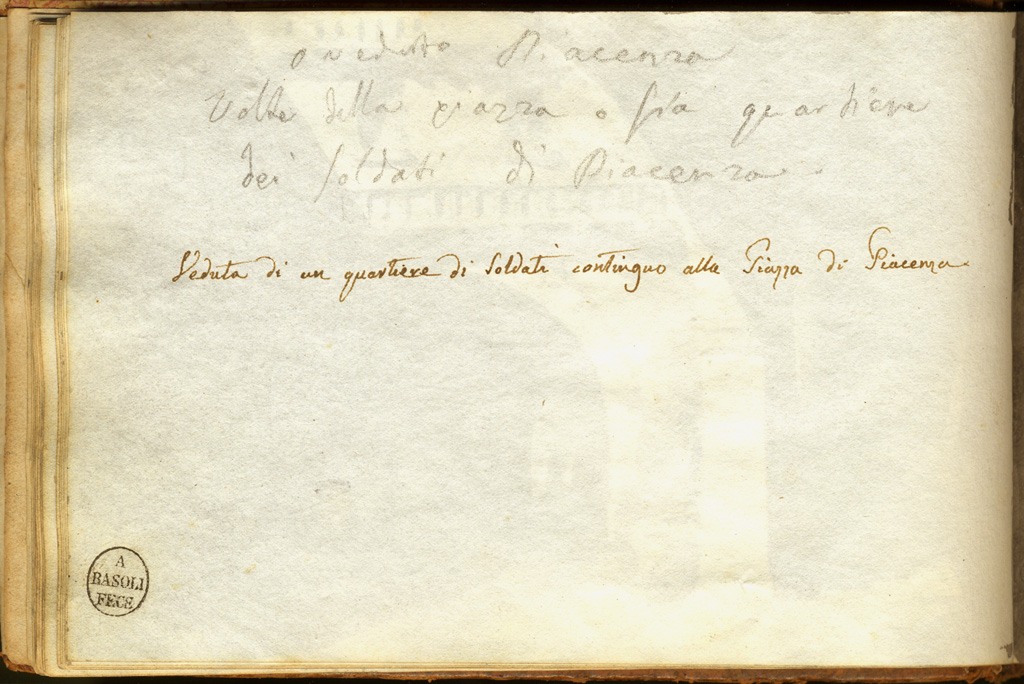 o veduto Piacenza
Volte della piazza o sia quartiere
dei soldati di Piacenza.
Veduta di un quartiere di Soldati continguo alla Piazza di Piacenza.
A
BASOLI
FECE